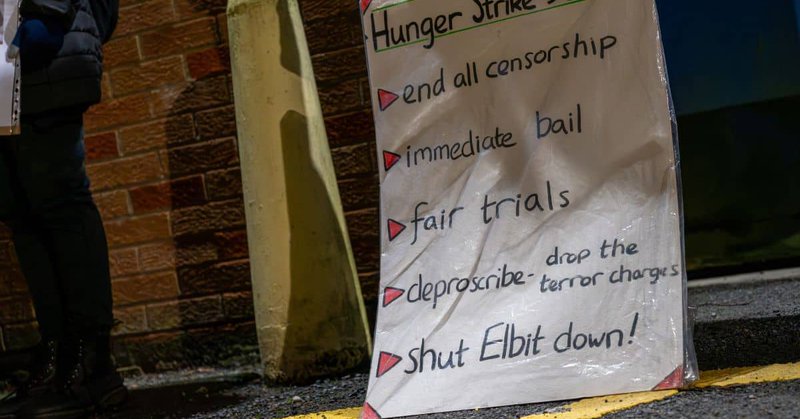 Hunger Strike
end all censorship
immediate bail
fair trials
deproscribe- drop the
terror charges
shut Elbit down!